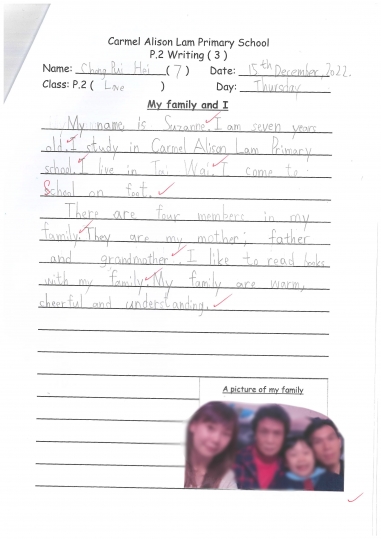 Carmel Alison Lam Primary School
P.2 Writing ( 3 )
Name: Chong Pui Hei ( 7 ) Date: 15th December, 2022.
Class: P.2 ( Love ) Day: Thursday
My family and I
My name Is Suzanne. I am seven years
old. I study in Carmel Alison Lam Primary
school. I live in Tai Wai. I come to
School on foot.
There are four members in my
family. They are my mother; father
and grandmother. I like to read books
with my family. My family are warm,
cheerful and understanding.
A picture of my family